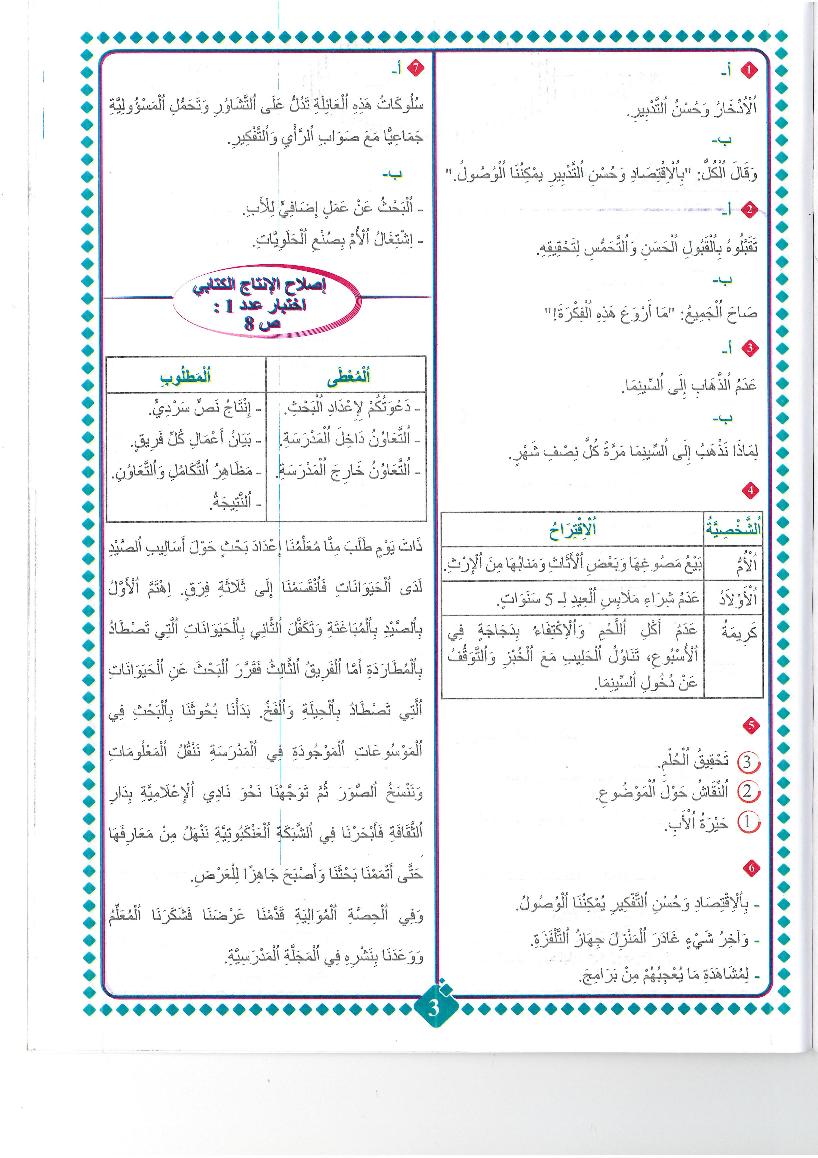 1 أ-
اَلْاِدِّخَارُ وَحُسْنُ اَلتَّدْبِيرِ.
ب-
وَقَالَ اَلْكُلُّ: "بِالْاِقْتِصَادِ وَحُسْنِ اَلتَّدْبِيرِ يُمْكِنُنَا اَلْوُصُولُ."
2 أ-
تَقَبَّلُوهُ بِالْقَبُولِ اَلْحَسَنِ وَالتَّحَمُّسِ لِتَحْقِيقِهِ.
ب-
صَاحَ اَلْجَمِيعُ: "مَا أَرْوَعَ هَذِهِ اَلْفِكْرَةَ!"
3 أ-
عَدَمُ اَلذَّهَابِ إِلَى اَلسِّينِمَا.
ب-
لِمَاذَا نَذْهَبُ إِلَى اَلسِّينِمَا مَرَّةً كُلَّ نِصْفِ شَهْرٍ.
4
اَلشَّخْصِيَّةُ اَلْاِقْتِرَاحُ
اَلْأُمُّ بَيْعُ مَصُوغِهَا وَبَعْضِ اَلْأَثَاثِ وَمَنَابِهَا مِنَ اَلْإِرْثِ.
اَلْأَوْلَادُ عَدَمُ شِرَاءِ مَلَابِسِ اَلْعِيدِ لِـ 5 سَنَوَاتٍ.
كَرِيمَةُ عَدَمُ أَكْلِ اَللَّحْمِ وَالْاِكْتِفَاءُ بِدَجَاجَةٍ فِي
اَلْأُسْبُوعِ، تَنَاوُلُ اَلْحَلِيبِ مَعَ اَلْخُبْزِ وَالتَّوَقُّفُ
عَنْ دُخُولِ اَلسِّينِمَا.
5
3 تَحْقِيقُ اَلْحُلْمِ.
2 اَلنِّقَاشُ حَوْلَ اَلْمَوْضُوعِ.
1 حَيْرَةُ اَلْأَبِ.
6
- بِالْاِقْتِصَادِ وَحُسْنِ اَلتَّفْكِيرِ يُمْكِنُنَا اَلْوُصُولُ.
- وَآخِرُ شَيْءٍ غَادَرَ اَلْمَنْزِلَ جِهَازُ اَلتَّلْفَزَةِ.
- لِمُشَاهَدَةِ مَا يُعْجِبُهُمْ مِنْ بَرَامِجَ.
7 أ-
سُلُوكَاتُ هَذِهِ اَلْعَائِلَةِ تَدُلُّ عَلَى اَلتَّشَاوُرِ وَتَحَمُّلِ اَلْمَسْؤُولِيَّةِ
جَمَاعِيًّا مَعَ صَوَابِ اَلرَّأْيِ وَالتَّفْكِيرِ.
ب-
- اَلْبَحْثُ عَنْ عَمَلٍ إِضَافِيٍّ لِلْأَبِ.
- اِشْتِغَالُ اَلْأُمِّ بِصُنْعِ اَلْحَلَوِيَّاتِ.
إصلاح الإنتاج الكتابي
اختبار عدد 1 :
ص 8
اَلْمُعْطَى اَلْمَطْلُوب
- دَعَوْتُكُمْ لِإِعْدَادِ اَلْبَحْثِ. - إِنْتَاجُ نَصٍّ سَرْدِيٍّ.
- اَلتَّعَاوُنُ دَاخِلَ اَلْمَدْرَسَةِ. - بَيَانُ أَعْمَالِ كُلِّ فَرِيقٍ.
- اَلتَّعَاوُنُ خَارِجَ اَلْمَدْرَسَةِ. - مَظَاهِرُ اَلتَّكَامُلِ وَالتَّعَاوُنِ.
- اَلنَّتِيجَةُ.
ذَاتَ يَوْمٍ طَلَبَ مِنَّا مُعَلِّمُنَا إِعْدَادَ بَحْثٍ حَوْلَ أَسَالِيبِ اَلصَّيْدِ
لَدَى اَلْحَيَوَانَاتِ فَانْقَسَمْنَا إِلَى ثَلَاثَةِ فِرَقٍ. اِهْتَمَّ اَلْأَوَّلُ
بِالصَّيْدِ بِالْمُبَاغَتَةِ وَتَكَفَّلَ اَلثَّانِي بِالْحَيَوَانَاتِ اَلَّتِي تَصْطَادُ
بِالْمُطَارَدَةِ أَمَّا اَلْفَرِيقُ اَلثَّالِثُ فَقَرَّرَ اَلْبَحْثَ عَنِ اَلْحَيَوَانَاتِ
اَلَّتِي تَصْطَادُ بِالْحِيلَةِ وَالْفَخِّ. بَدَأْنَا بُحُوثَنَا بِالْبَحْثِ فِي
اَلْمَوْسُوعَاتِ اَلْمَوْجُودَةِ فِي اَلْمَدْرَسَةِ نَنْقُلُ اَلْمَعْلُومَاتِ
وَنَنْسَخُ اَلصُّوَرَ ثُمَّ تَوَجَّهْنَا نَحْوَ نَادِي اَلْإِعْلَامِيَّةِ بِدَارِ
اَلثَّقَافَةِ فَأَبْحَرْنَا فِي اَلشَّبَكَةِ اَلْعَنْكَبُوتِيَّةِ نَنْهَلُ مِنْ مَعَارِفِهَا
حَتَّى أَتْمَمْنَا بَحْثَنَا وَأَصْبَحَ جَاهِزًا لِلْعَرْضِ.
وَفِي اَلْحِصَّةِ اَلْمُوَالِيَةِ قَدَّمْنَا عَرْضَنَا فَشَكَرَنَا اَلْمُعَلِّمُ
وَوَعَدَنَا بِنَشْرِهِ فِي اَلْمَجَلَّةِ اَلْمَدْرَسِيَّةِ.
3